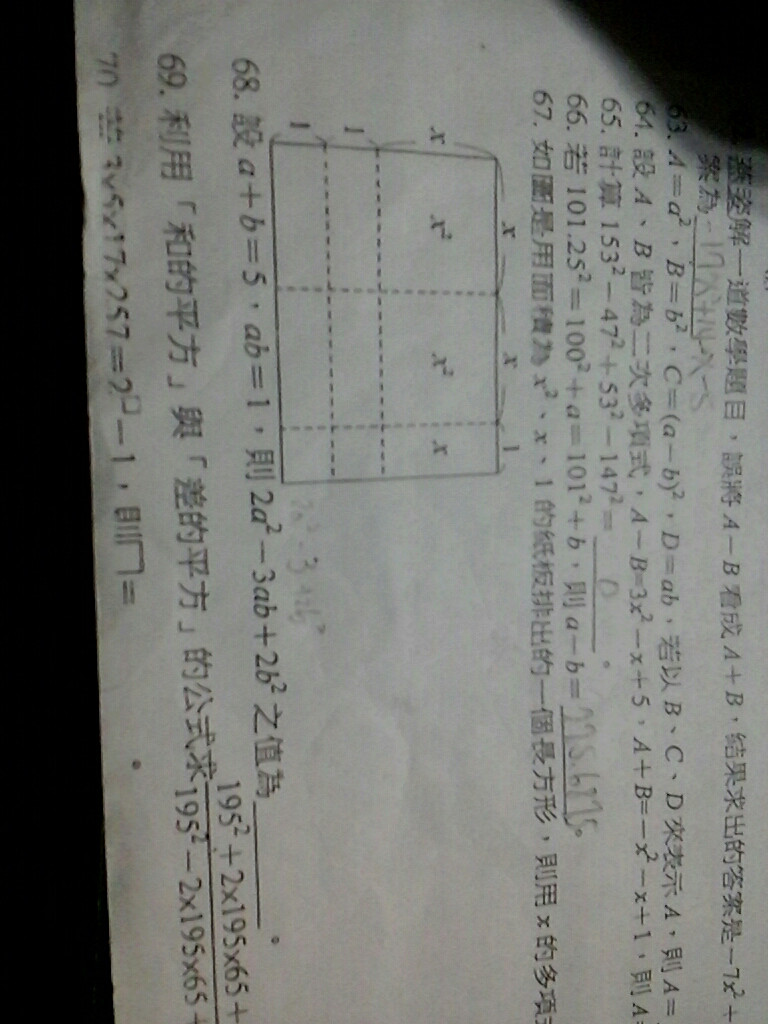 蕙姿解一道數學題目,誤將 A-B 看成 A+B,結果求出的答案是 -7x²+
案為 -17x²+14x-5
63. A=a²、B=b²,C=(a-b)²,D=ab,若以 B、C、D 來表示 A,則 A=
64. 設 A、B 皆為二次多項式,A-B=3x²-x+5,A+B=-x²-x+1,則 A
65. 計算 153²-47²+53²-147²= 0 。
66. 若 101.25²=100²+a=101²+b,則 a-b=
67. 如圖是用面積為 x²、x、1 的紙板排出的一個長方形,則用 x 的多項
x x 1
x x² x² x
1
1
68. 設 a+b=5,ab=1,則 2a²-3ab+2b² 之值為 。
195²+2x195x65+
69. 利用「和的平方」與「差的平方」的公式求
195²-2x195x65+
70. 若 3x5x17x257=2□-1,則□= 。